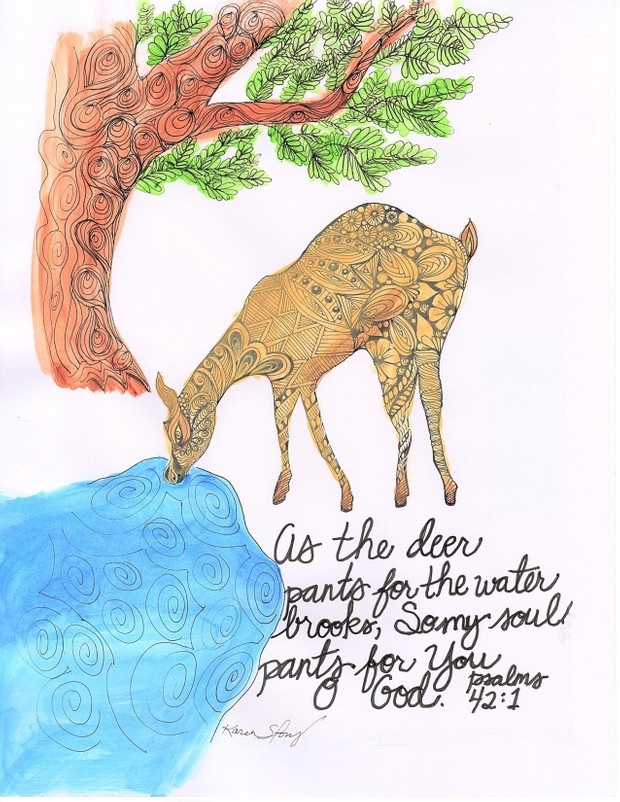 as the deer
pants for the water
brooks, So my soul
pants for You
O God. psalms
42:1
Karen